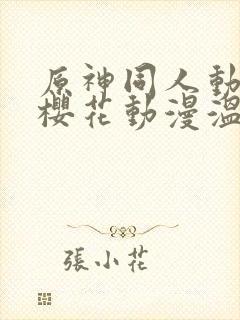 原神同人動
櫻花動漫溫
張小花